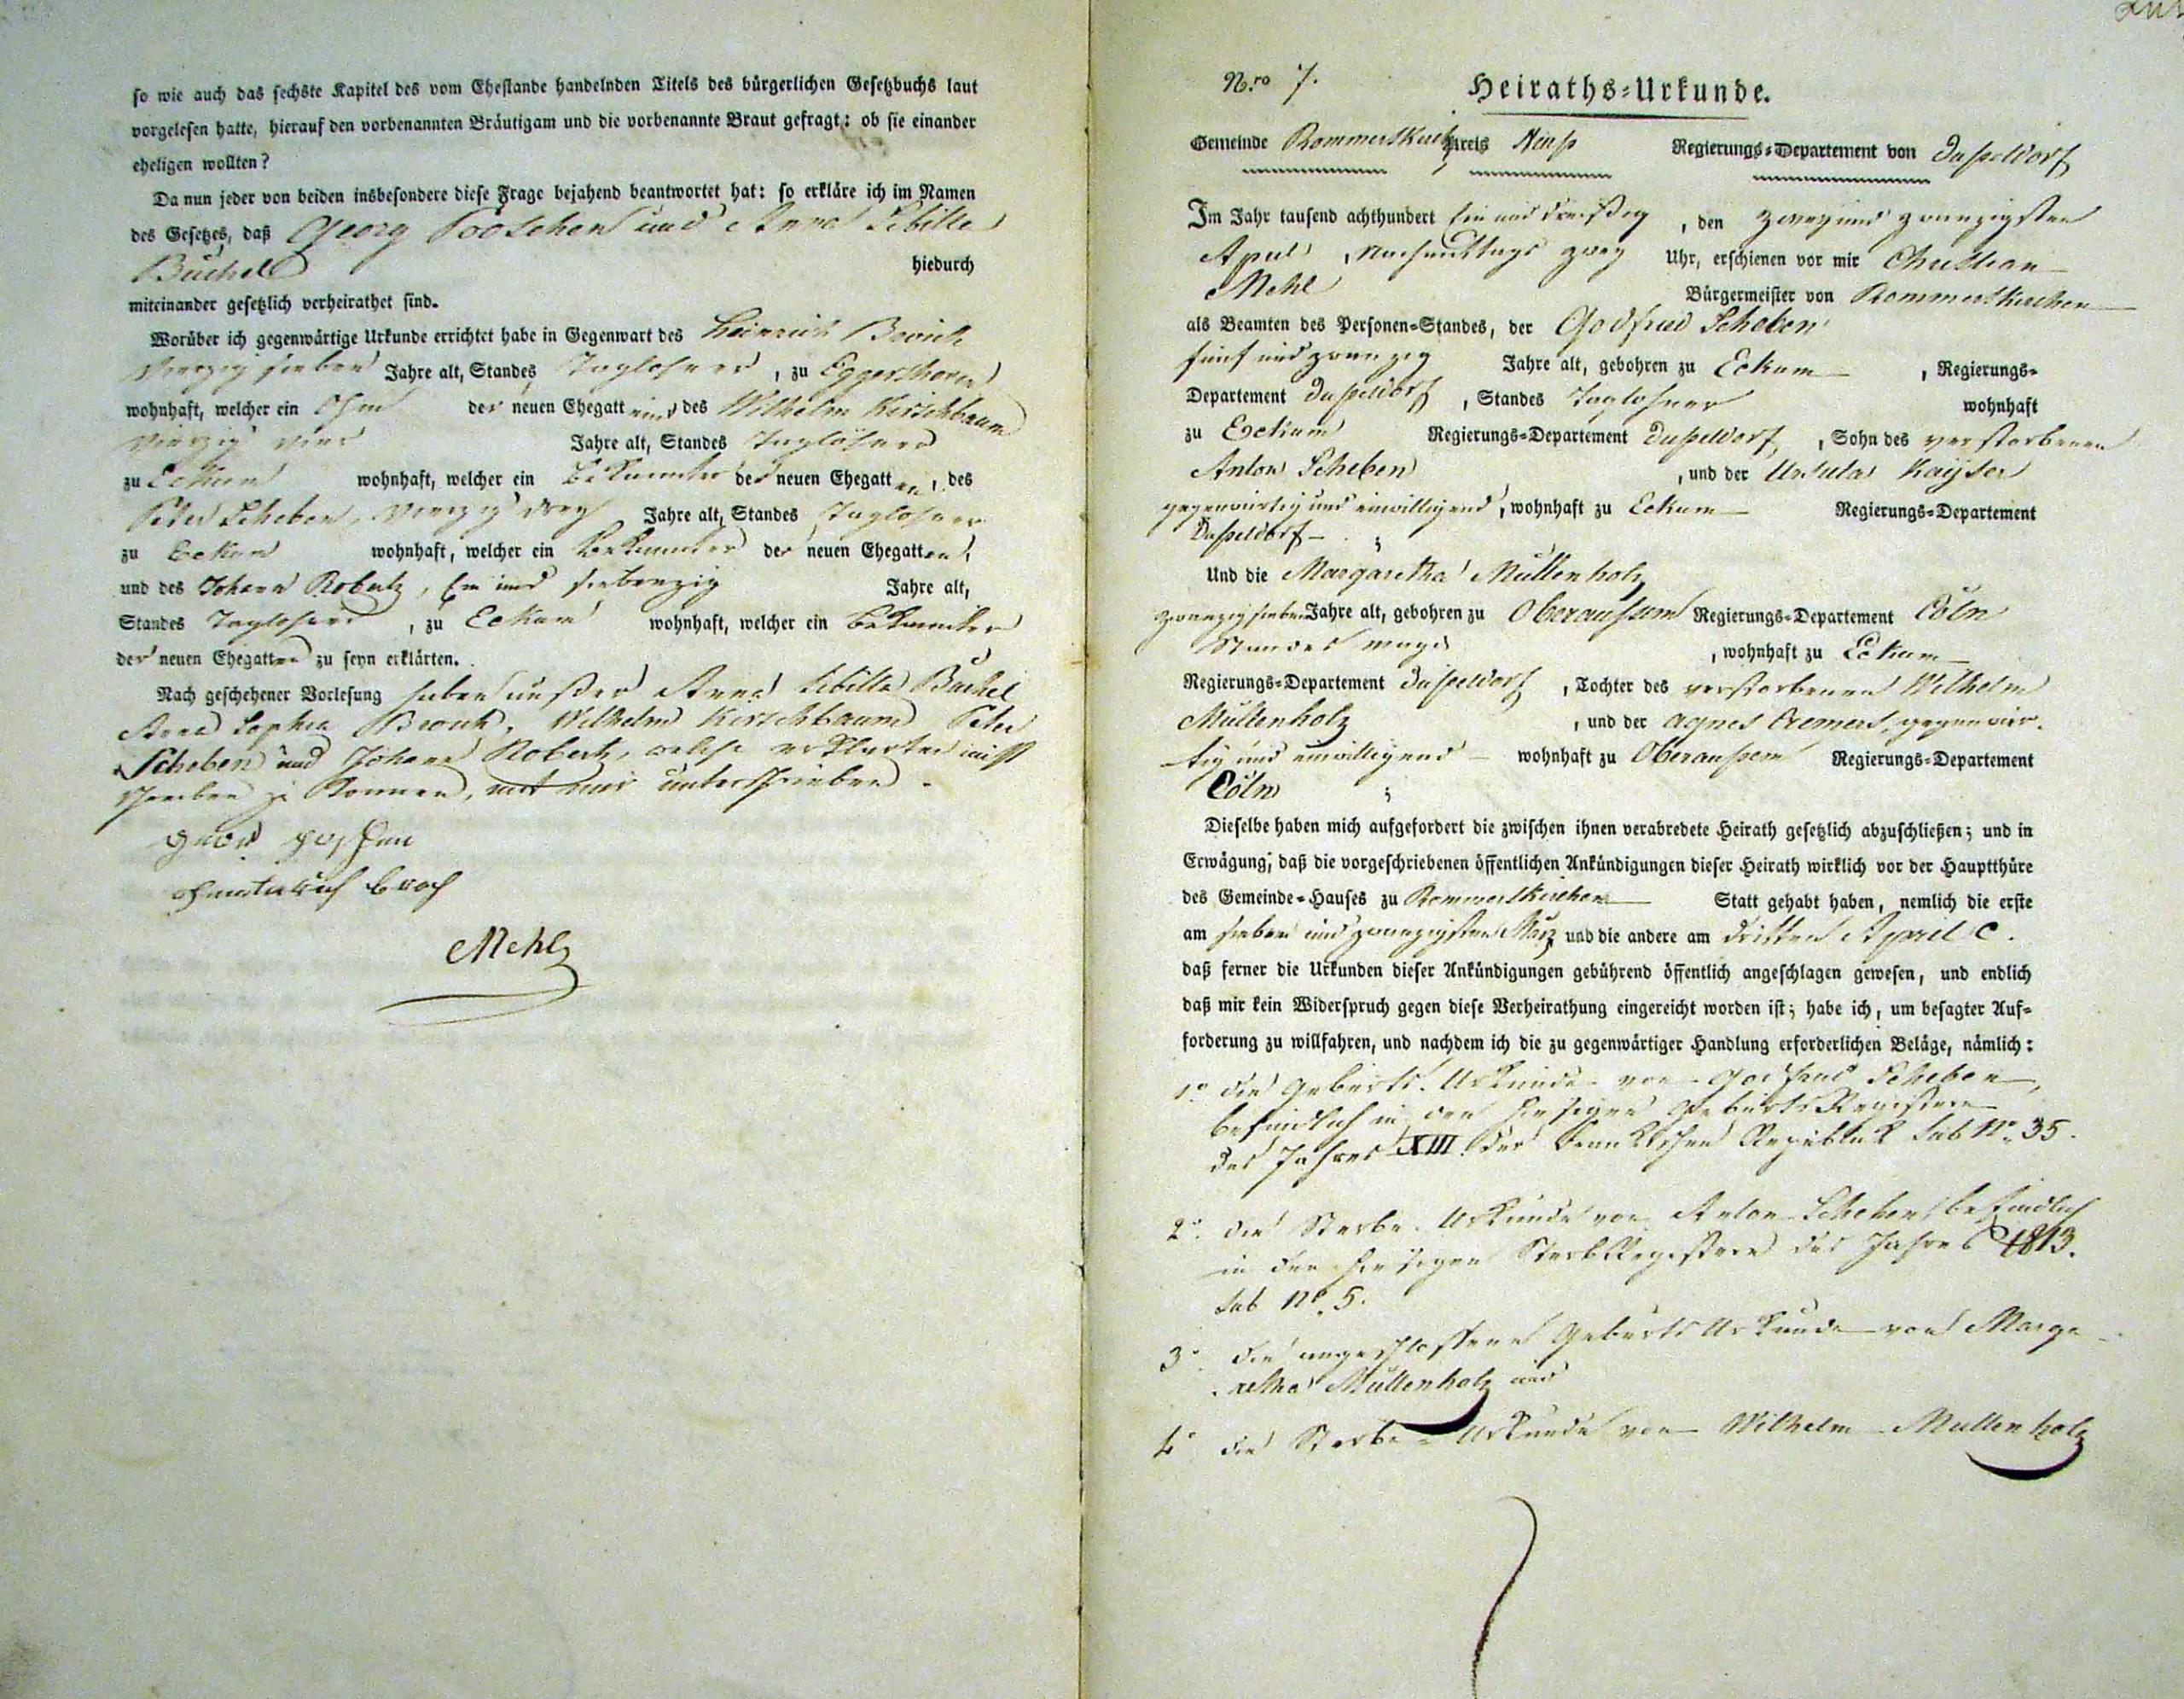 so wie auch das sechste Kapitel des vom Ehestande handelnden Titels des bürgerlichen Gesetzbuchs laut
vorgelesen hatte, hierauf den vorbenannten Bräutigam und die vorbenannte Braut gefragt: ob sie einander
eheligen wollten?
Da nun jeder von beiden insbesondere diese Frage bejahend beantwortet hat: so erkläre ich im Namen
des Gesetzes, daß Georg Pooschen und Anna Sibilla
Büchel hiedurch
miteinander gesetzlich verheirathet sind.
Worüber ich gegenwärtige Urkunde errichtet habe in Gegenwart des Heinrich
Vierzig sieben Jahre alt, Standes Taglohner, zu
wohnhaft, welcher ein Ohm der neuen Ehegattin, des Wilhelm Kirschbaum
Vierzig vier Jahre alt, Standes Taglöhner
zu Eckum wohnhaft, welcher ein bekannter der neuen Ehegatten, des
Peter Scheben, Vierzig drey Jahre alt, Standes Taglohner
zu Eckum wohnhaft, welcher ein bekannter der neuen Ehegatten,
und des Johann Robertz, Ein und siebenzig Jahre alt,
Standes Taglohner, zu Eckum wohnhaft, welcher ein bekannter
der neuen Ehegatten zu seyn erklärten.
Nach geschehener Vorlesung haben außer Anna Sibilla Büchel
Anna Sophia Wilhelm Kirschbaum Peter
Scheben und Johann Robertz, welche erklärten nicht
schreiben zu können, mit mir unterschrieben.
Mehl
Nro 7. Heiraths-Urkunde.
Gemeinde Rommerskirch Kreis Neuß Regierungs-Departement von Dußeldorf
Im Jahr tausend achthundert Ein und dreißig, den zwey und zwanzigsten
April, Nachmittags zwey Uhr, erschienen vor mir Christian
Mehl Bürgermeister von Rommerskirchen
als Beamten des Personen-Standes, der Godfried Scheben
fünf und zwanzig Jahre alt, gebohren zu Eckum, Regierungs-
Departement Dußeldorf, Standes Taglohner wohnhaft
zu Eckum Regierungs-Departement Dußeldorf, Sohn des verstorbenen
Anton Scheben, und der Ursula Kayser
gegenwärtig und einwilligend, wohnhaft zu Eckum Regierungs-Departement
Dußeldorf;
Und die Margaretha Müllenholz
zwanzig sieben Jahre alt, gebohren zu Oberaußem Regierungs-Departement Cöln
Standes Magd, wohnhaft zu Eckum
Regierungs-Departement Dußeldorf, Tochter des verstorbenen Wilhelm
Müllenholz, und der Agnes Cremers, gegenwär-
tig und einwilligend wohnhaft zu Oberaußem Regierungs-Departement
Cöln;
Dieselbe haben mich aufgefordert die zwischen ihnen verabredete Heirath gesetzlich abzuschließen; und in
Erwägung, daß die vorgeschriebenen öffentlichen Ankündigungen dieser Heirath wirklich vor der Hauptthüre
des Gemeinde-Hauses zu Rommerskirchen Statt gehabt haben, nemlich die erste
am sieben und zwanzigsten März und die andere am dritten April c.
daß ferner die Urkunden dieser Ankündigungen gebührend öffentlich angeschlagen gewesen, und endlich
daß mir kein Widerspruch gegen diese Verheirathung eingereicht worden ist; habe ich, um besagter Auf-
forderung zu willfahren, und nachdem ich die zu gegenwärtiger Handlung erforderlichen Beläge, nämlich:
1° die Geburts-Urkunde von Godfried Scheben,
befindlich in den hiesigen Geburts Registern
des Jahres XIII der Fränkischen Republick sub No. 35.
2° die Sterbe-Urkunde von Anton Scheben, befindlich
in den hiesigen Sterb Registern des Jahres 1813.
sub No. 5.
3° die angeschlossene Geburts Urkunde von Marga-
retha Müllenholz und
4° die Sterbe-Urkunde von Wilhelm Mullenholz